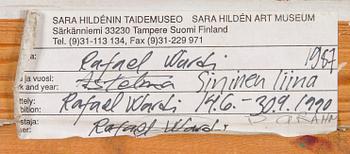 SARA HILDÉNIN TAIDEMUSEO SARA HILDÉN ART MUSEUM
Särkänniemi 33230 Tampere Suomi Finland
Tel. (9)31-113 134, Fax (9)31-229 971
Rafael Wardi 1987
ja vuosi:
rk and year: Asetelma Sininen liina
ttely:
bition: Rafael Wardi 14.6.-30.9.1990
staja:
er: Rafael Wardi